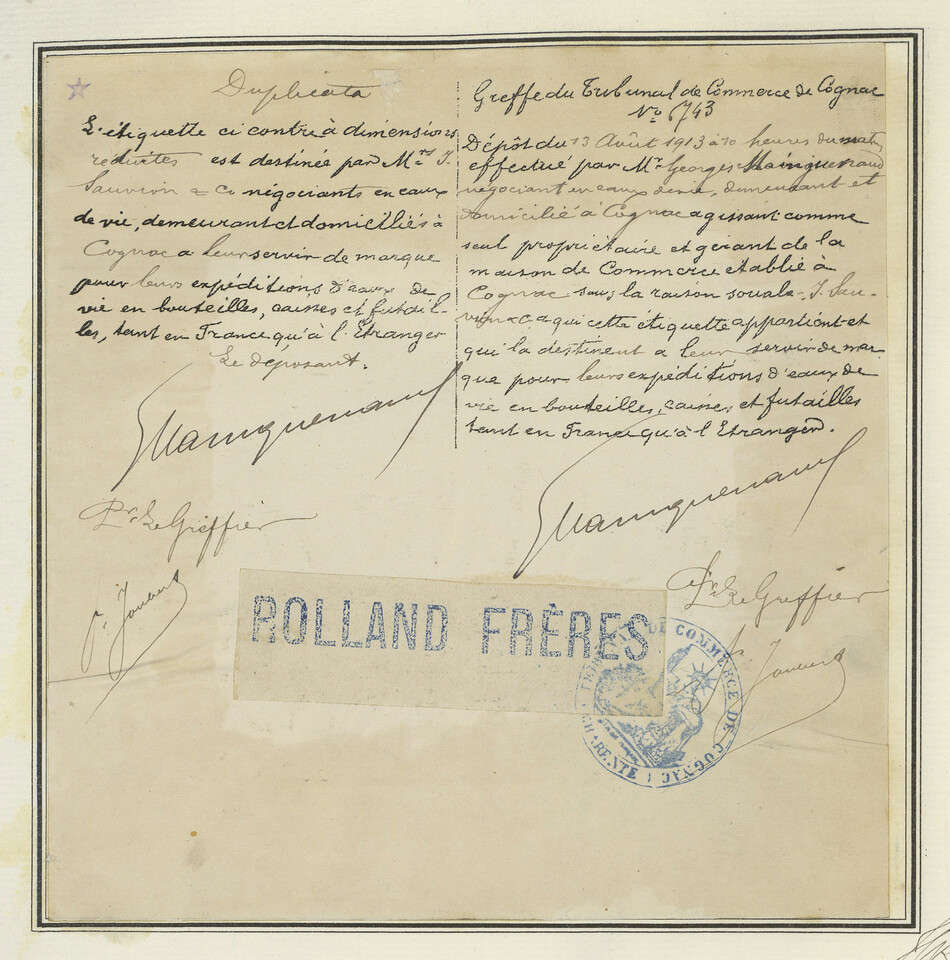 Duplicata
L'étiquette ci contre à dimensions
réduites est destinée par Mrs J.
Sauvion & Co négociants en eaux
de vie, demeurant et domiciliés à
Cognac a leur servir de marque
pour leurs expéditions d'eaux de
vie en bouteilles, caisses et futail-
les, tant en France qu'à l'Etranger
Le déposant.
GMainguenaud
Pr Le Greffier
Greffe du Tribunal de Commerce de Cognac
No 6743
Dépôt du 13 Août 1913 à 10 heures du mat.
effectué par Mr Georges Mainguenaud
négociant en eaux de vie, demeurant et
domicilié à Cognac agissant comme
seul propriétaire et gérant de la
maison de Commerce établie à
Cognac sous la raison sociale J. Sau-
vion & C a qui cette étiquette appartient et
qui la destinent a leur servir de mar
que pour leurs expéditions d'eaux de
vie en bouteilles, caisses et futailles
tant en France qu'à l'Etranger.
GMainguenaud
Pr Le Greffier
ROLLAND FRÈRES
TRIBUNAL DE COMMERCE DE COGNAC
CHARENTE